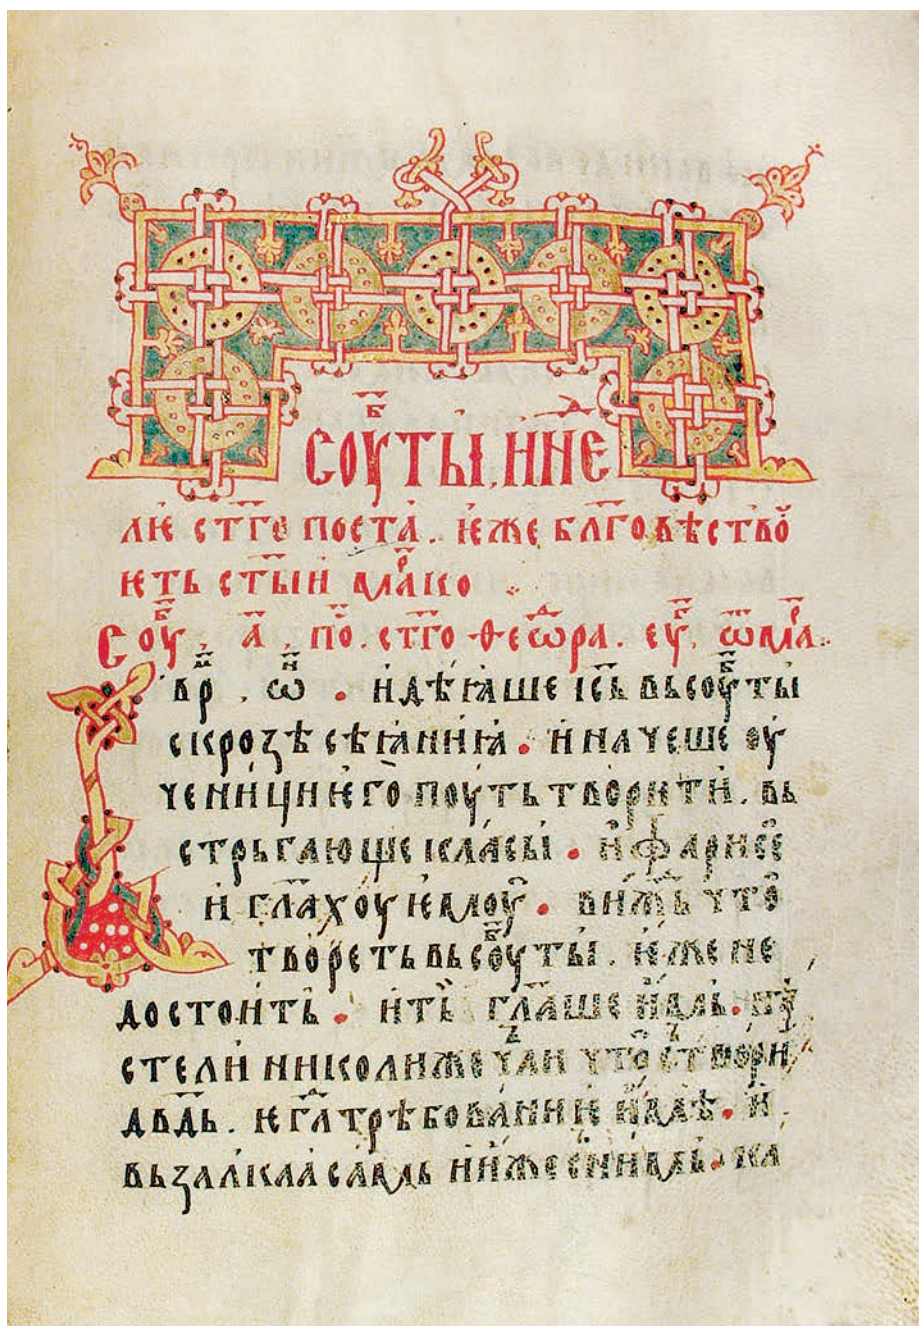 соуⷠты, и неⷣ
лѥ ст҃го поста . ѥже бл҃говѣствоⷹ
ѥть ст҃ыи маⷬко ⁘
Соуⷠ, а҃, поⷭ. ст҃го ѳеѡⷣра . еⷢу, ѿ маⷬ.
Въ вⷬрⷨ, ѡⷩ • идѣꙗше іс҃ь вь соуⷠты
скрозѣ сѣꙗниꙗ • и начеше оу
ченици ѥго поуть творити . вь
стрьгающе класы • и фарисеⷪ
и гл҃ахоу ѥмоу • виж҃ь что
твореть вь соуⷠты . ѥже не
достоить • и тьⷨ гл҃аше имь •
стели николиже чⷧи что створи
дв҃дь . ѥгⷣа трѣбованиѥ имѣ • и
вьзалка самь и иже с нимь •